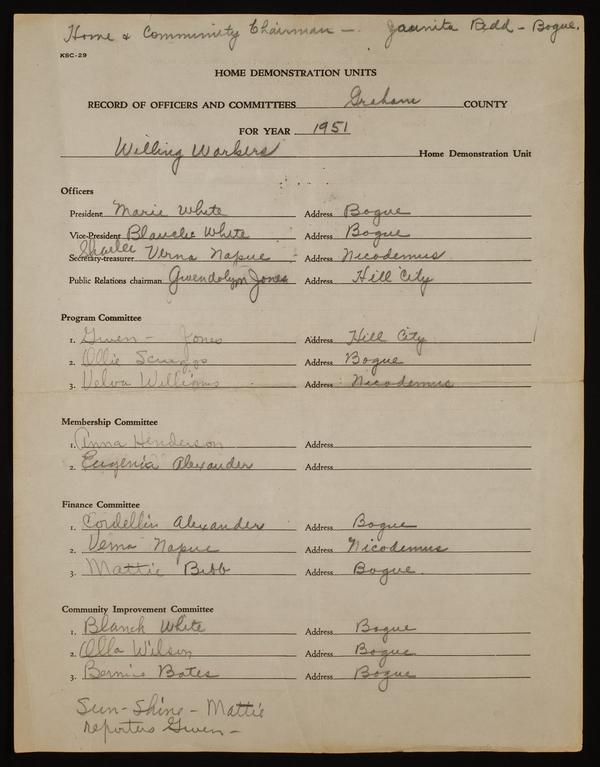 Home & Community Chairman - Jaunita Redd - Bogue.
KSC-29
HOME DEMONSTRATION UNITS
RECORD OF OFFICERS AND COMMITTEES Graham COUNTY
FOR YEAR 1951
Willing Workers Home Demonstration Unit
Officers
President Marie White Address Bogue
Vice-President Blanche White Address Bogue
Secretary-treasurer Verna Napue Address Nicodemus
Public Relations chairman Gwendolyn Jones Address Hill City
Program Committee
1. Gwen - Jones Address Hill City
2. Ollie Scruggs Address Bogue
3. Velva Williams Address Nicodemus
Membership Committee
1. Anna Henderson Address
2. Eugenia Alexander Address
Finance Committee
1. Cordellia Alexander Address Bogue
2. Verna Napue Address Nicodemus
3. Mattie Bibb Address Bogue
Community Improvement Committee
1. Blanch White Address Bogue
2. Olla Wilson Address Bogue
3. Bernice Bates Address Bogue
Sun-Shine - Mattie
reporters Gwen -